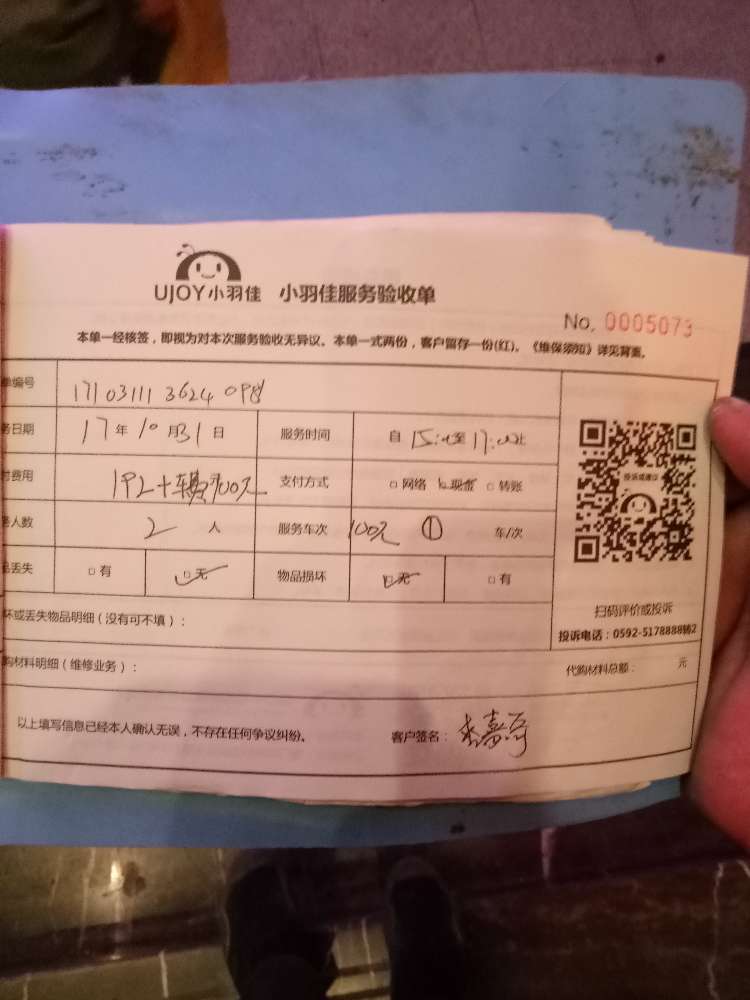 UJOY小羽佳 小羽佳服务验收单
No. 0005073
本单一经核签，即视为对本次服务验收无异议。本单一式两份，客户留存一份(红)。《维保须知》详见背面。
单编号 17103111 3624 098
务日期 17年10月31日 服务时间 自15:00至17:00止
付费用 192+车费100元 支付方式 □网络 □现金 □转账
务人数 2人 服务车次 100元 ① 车/次
品丢失 □有 □无 物品损坏 □无 □有
投诉或建议
扫码评价或投诉
投诉电话：0592-5178888转2
坏或丢失物品明细（没有可不填）：
购材料明细（维修业务）： 代购材料总额： 元
以上填写信息已经本人确认无误，不存在任何争议纠纷。 客户签名：